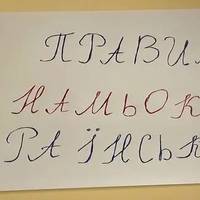 ПРАВИЛ
НАМЬОК
РАЇНСЬК